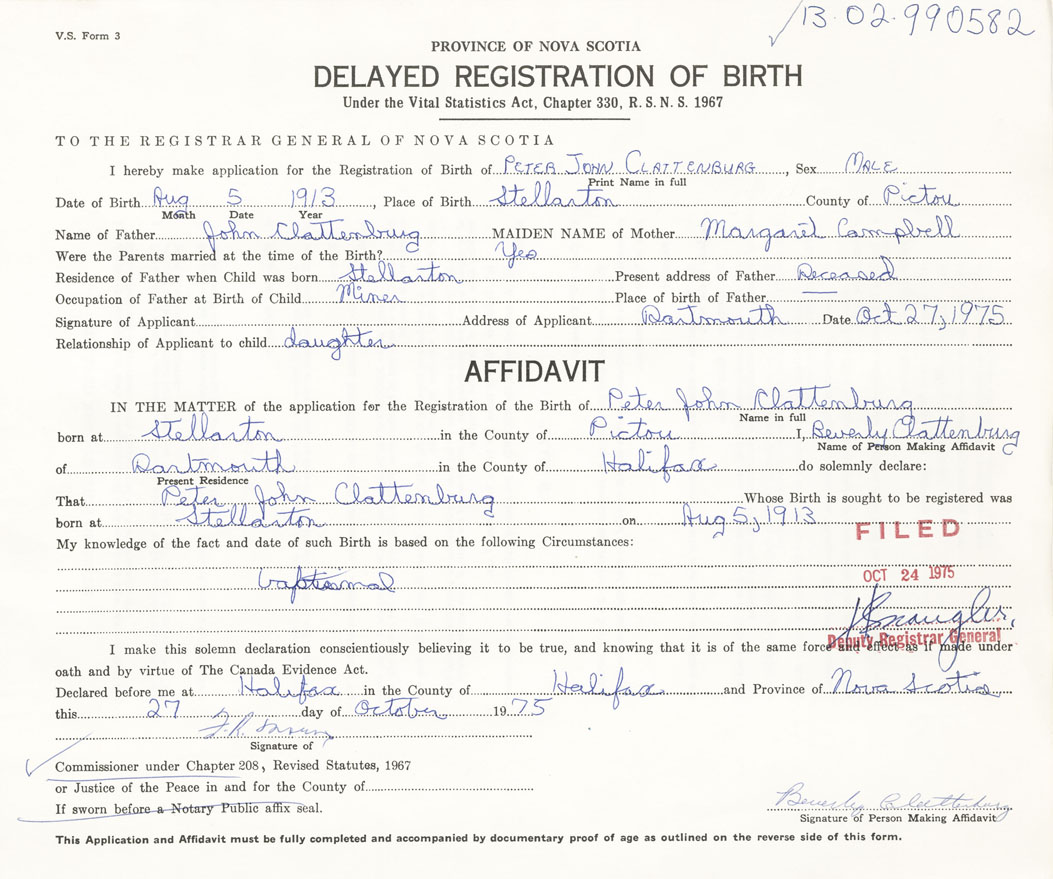 13·02·990582
V.S. Form 3
PROVINCE OF NOVA SCOTIA
DELAYED REGISTRATION OF BIRTH
Under the Vital Statistics Act, Chapter 330, R. S. N. S. 1967
TO THE REGISTRAR GENERAL OF NOVA SCOTIA
I hereby make application for the Registration of Birth of PETER JOHN CLATTENBURG, Sex MALE
Print Name in full
Date of Birth Aug 5 1913, Place of Birth Stellarton County of Pictou
Month Date Year
Name of Father John Clattenburg MAIDEN NAME of Mother Margaret Campbell
Were the Parents married at the time of the Birth? Yes
Residence of Father when Child was born Stellarton Present address of Father Deceased
Occupation of Father at Birth of Child Miner Place of birth of Father
Signature of Applicant Address of Applicant Dartmouth Date Oct 27, 1975
Relationship of Applicant to child daughter
AFFIDAVIT
IN THE MATTER of the application for the Registration of the Birth of Peter John Clattenburg
Name in full
born at Stellarton in the County of Pictou I, Beverly Clattenburg
Name of Person Making Affidavit
of Dartmouth in the County of Halifax do solemnly declare:
Present Residence
That Peter John Clattenburg Whose Birth is sought to be registered was
born at Stellarton on Aug 5, 1913
FILED
My knowledge of the fact and date of such Birth is based on the following Circumstances:
OCT 24 1975
baptismal
Deputy Registrar General
I make this solemn declaration conscientiously believing it to be true, and knowing that it is of the same force and effect as if made under
oath and by virtue of The Canada Evidence Act.
Declared before me at Halifax in the County of Halifax and Province of Nova Scotia
this 27 day of October 1975
Signature of
Commissioner under Chapter 208, Revised Statutes, 1967
or Justice of the Peace in and for the County of
If sworn before a Notary Public affix seal.
Beverly Clattenburg
Signature of Person Making Affidavit
This Application and Affidavit must be fully completed and accompanied by documentary proof of age as outlined on the reverse side of this form.